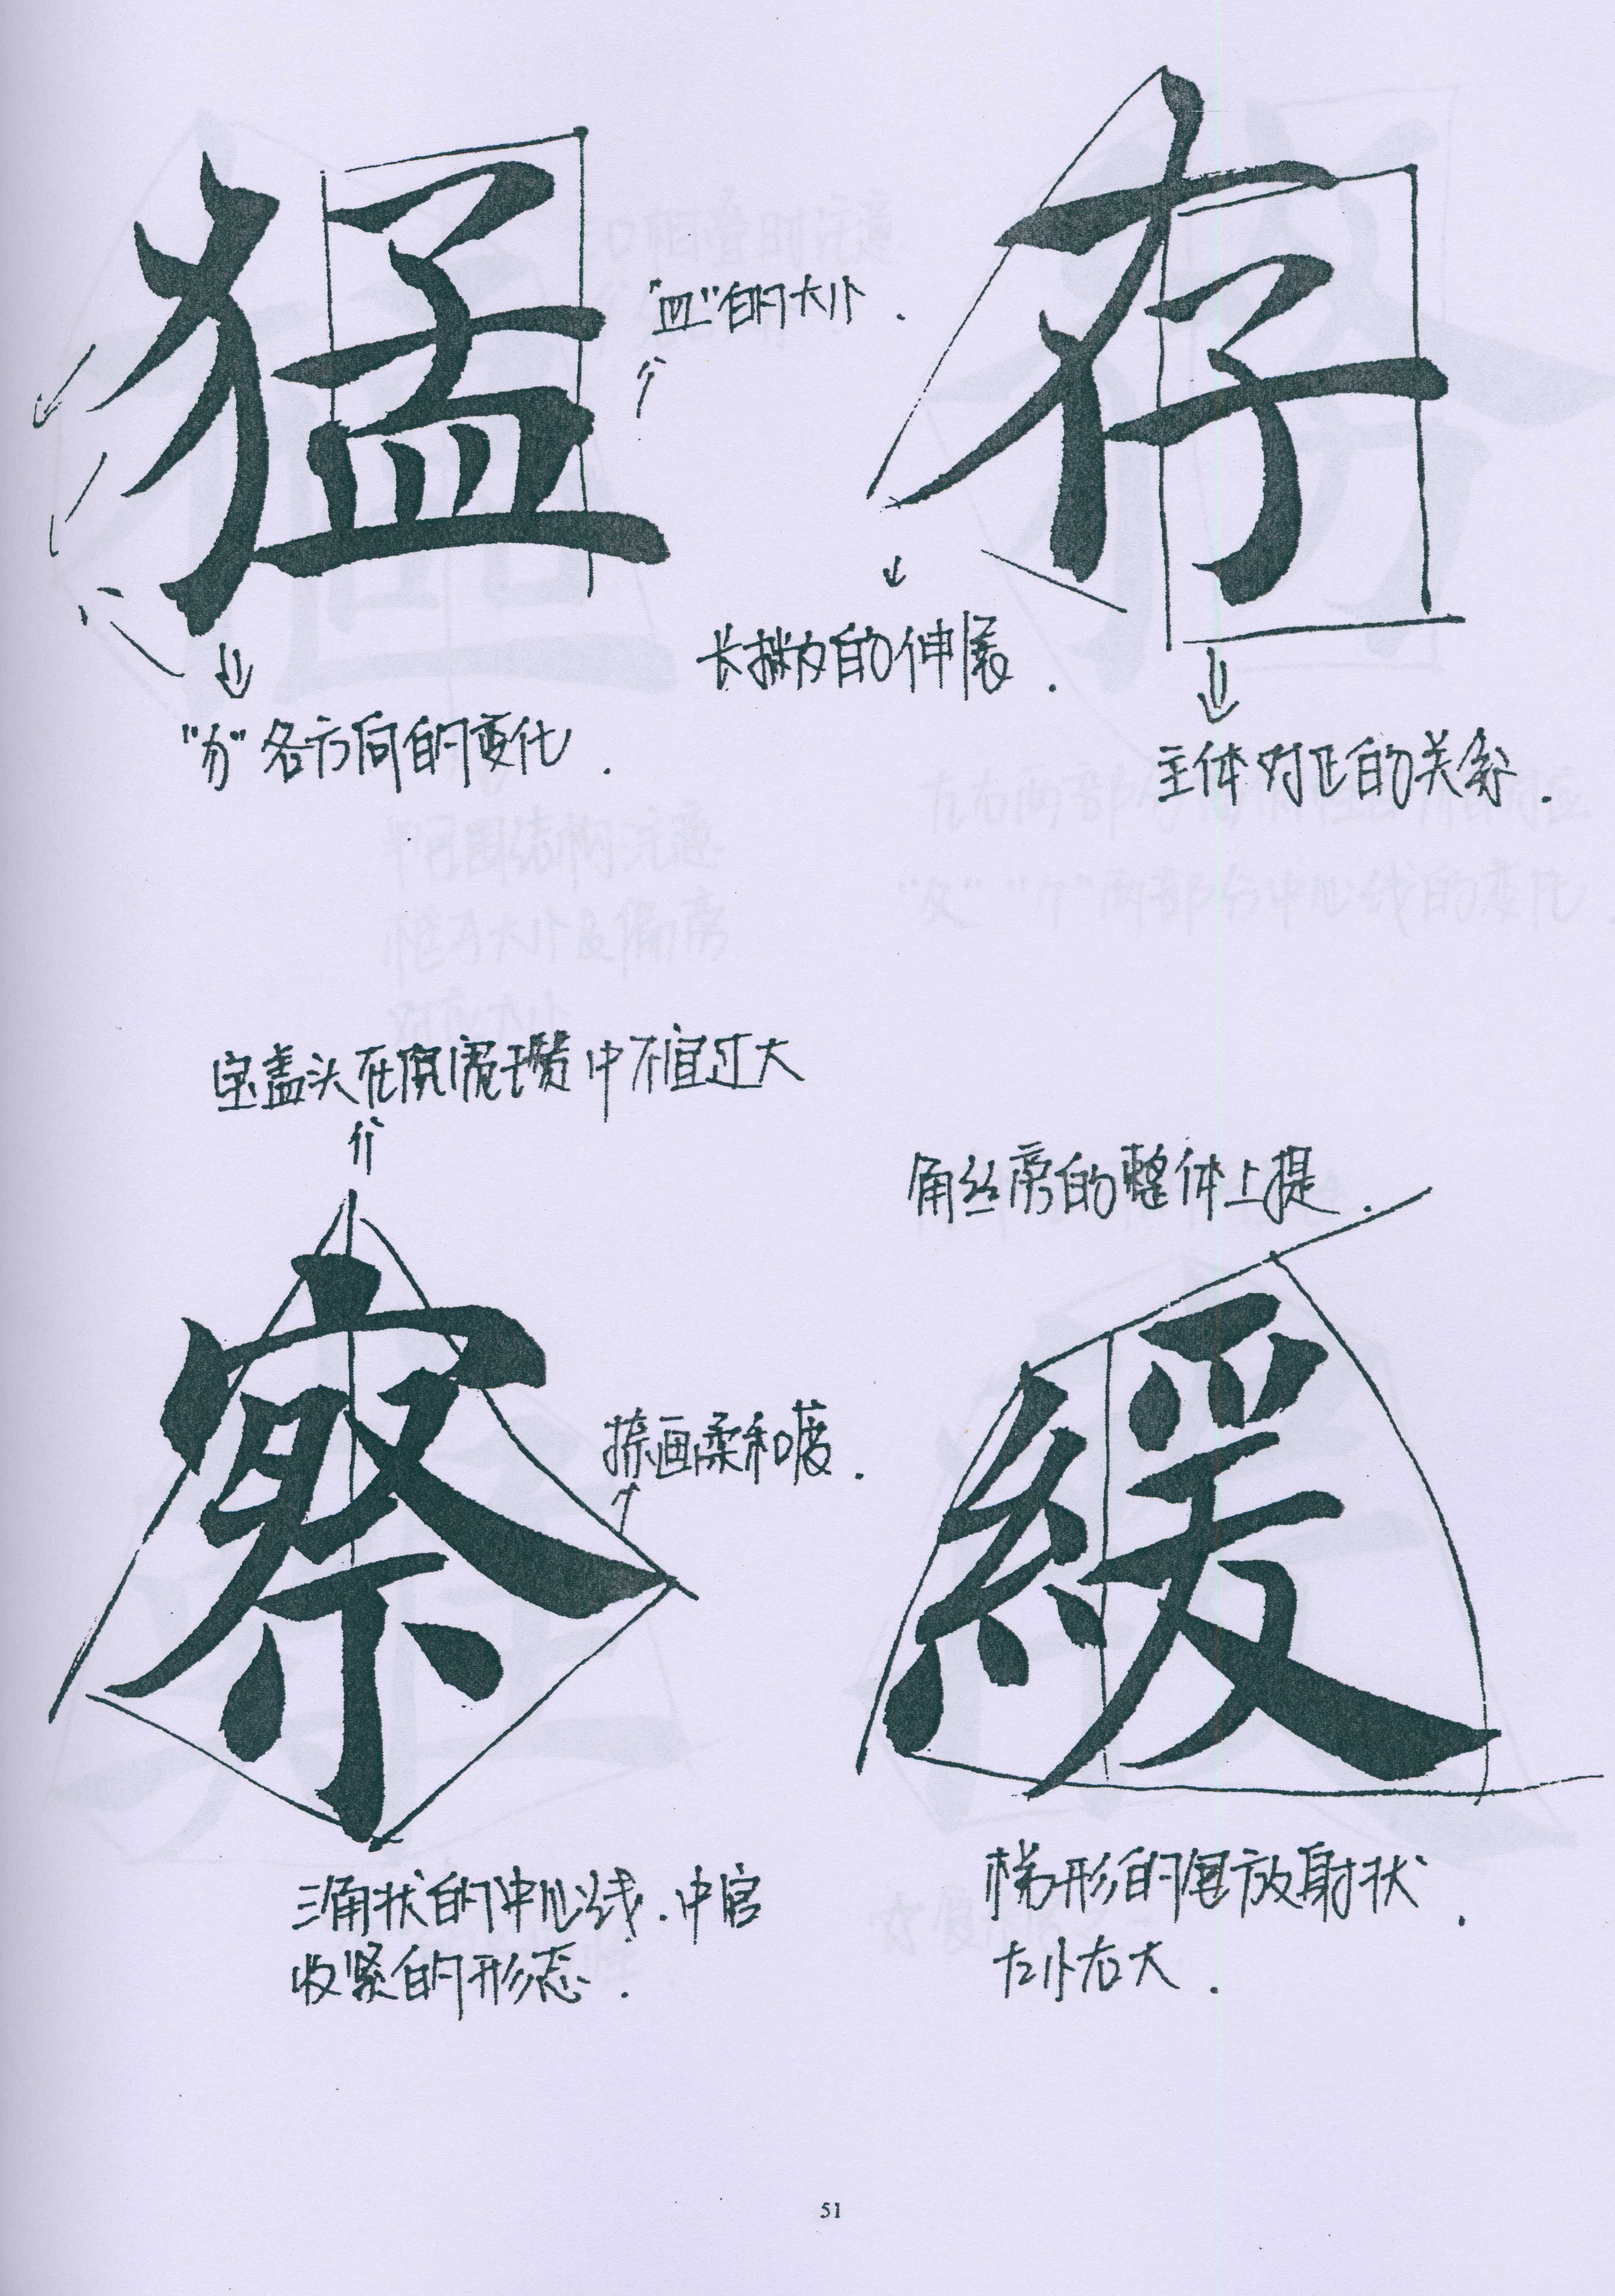 猛
存
"皿"的大小.
长撇的伸展.
"犭"各方向的变化.
主体对正的关系.
宝盖头在倪宽赞中不宜过大
角丝旁的整体上提.
察
緩
捺画柔和度.
三角状的中心线.中宫
收紧的形态.
梯形的 放射状.
左小右大.
51